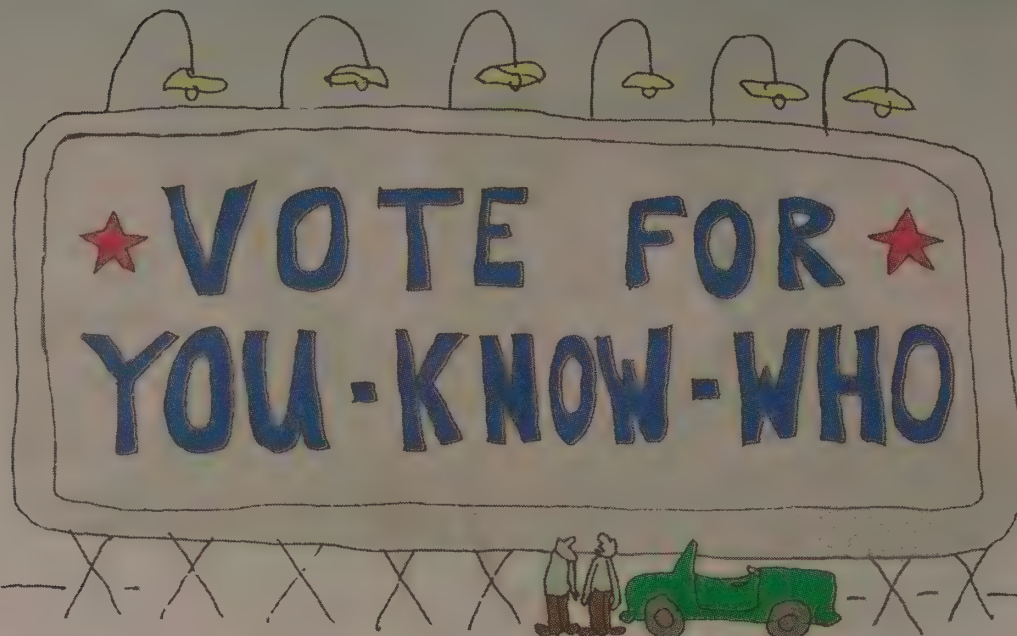 VOTE FOR
YOU-KNOW-WHO